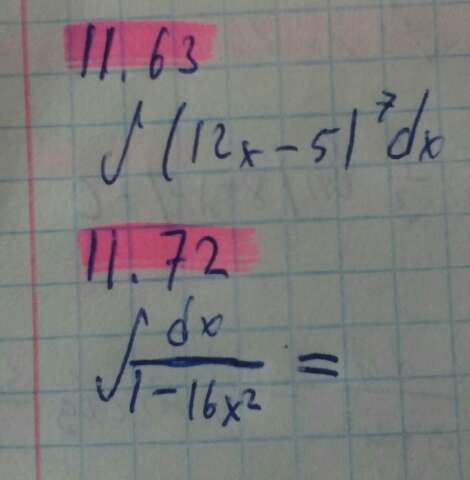 11.63
∫(12x-5)⁷dx
11.72
∫dx/(1-16x²) =